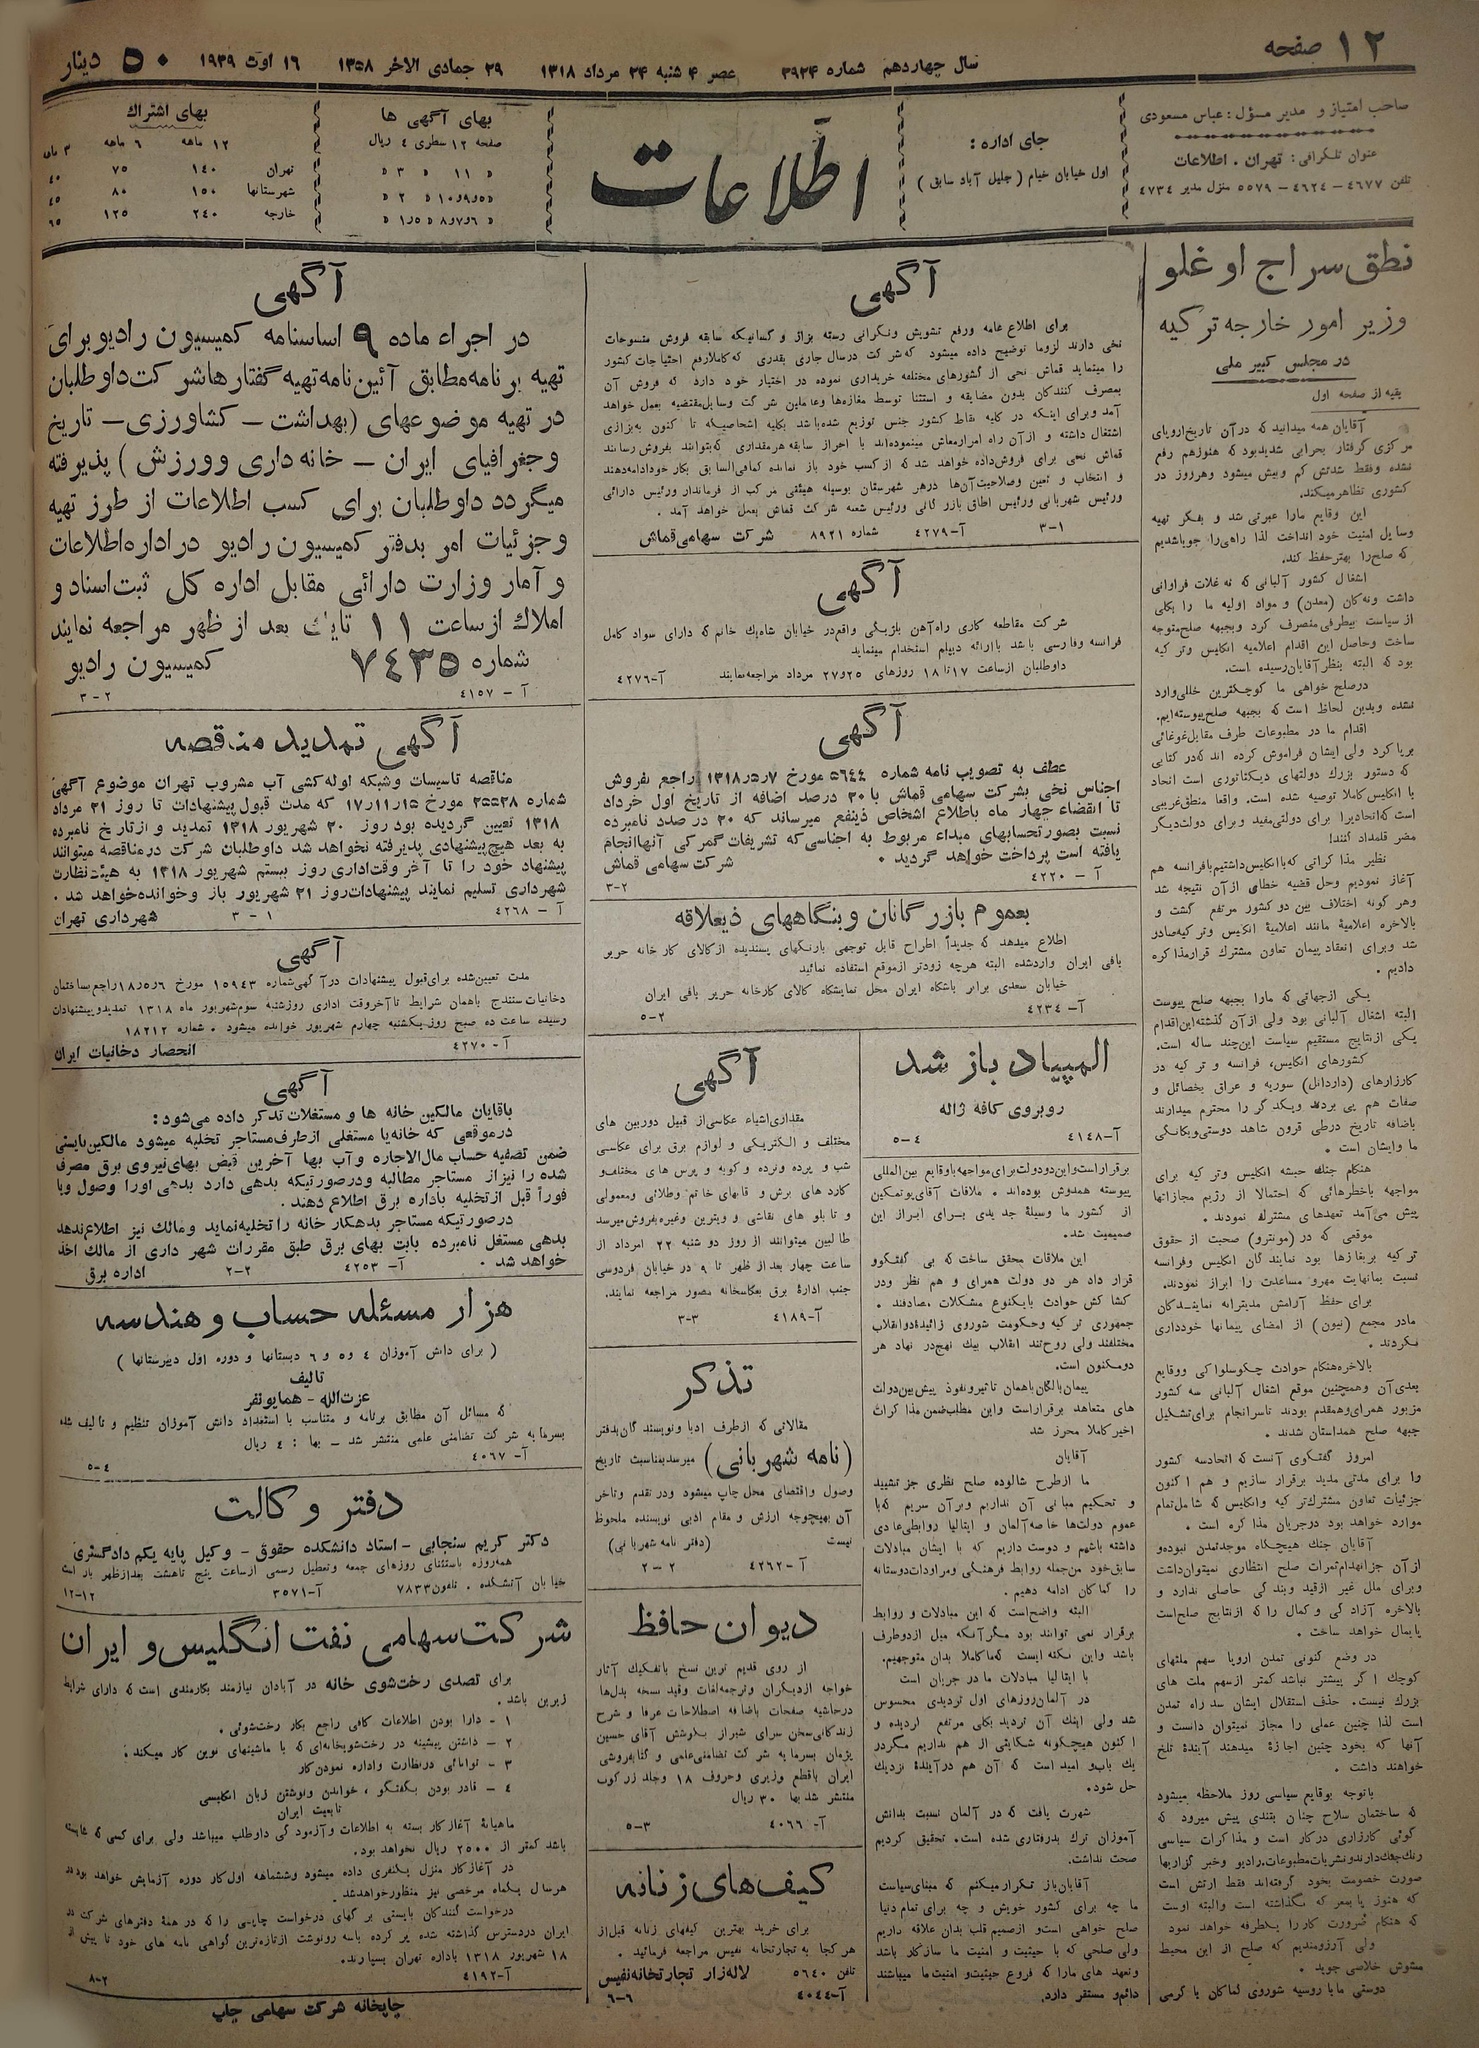 ۱۲ صفحه
سال چهاردهم شماره ۳۹۲۴
عصر ۴ شنبه ۲۴ مرداد ۱۳۱۸
۲۹ جمادی الاخر ۱۳۵۸
۱۶ اوت ۱۹۳۹
۵۰ دینار
صاحب امتیاز و مدیر مسؤل : عباس مسعودی
عنوان تلگرافی : تهران . اطلاعات
تلفن ۴۶۷۷ - ۴۶۲۴ - ۵۵۷۹ منزل مدیر ۴۷۳۴
جای اداره :
اول خیابان خیام ( جلیل آباد سابق )
اطّلاعات
بهای آگهی ها
صفحه ۱۲ سطری ٤ ریال
» ۱۱ » ۳ »
» ۵و۹و۱۰ » ۲ »
» ۶و۷و۸ » ۱و۵ »
بهای اشتراك
۱۲ ماهه ۶ ماهه ۳ ماهه
تهران ۱٤۰ ۷۵ ٤۰
شهرستانها ۱۵۰ ۸۰ ٤۵
خارجه ۲٤۰ ۱۲۵ ۶۵
نطق سراج اوغلو
وزیر امور خارجه ترکیه
در مجلس کبیر ملی
بقیه از صفحه اول
آقایان همه میدانید که در آن تاریخ اروپای
مرکزی گرفتار بحرانی شدید بود که هنوز هم رفع
نشده وفقط شدتش کم وبیش میشود وهرروز در
کشوری تظاهر میکند.
این وقایع مارا عبرتی شد و بفکر تهیه
وسایل امنیت خود انداخت لذا راهی را جویا شدیم
که صلح را بهتر حفظ کند.
اشغال کشور آلبانی که نه غلات فراوانی
داشت ونه کان (معدن) و مواد اولیه ما را بکلی
از سیاست بیطرفی منصرف کرد وبجبهه صلح متوجه
ساخت وحاصل این اقدام اعلامیه انگلیس وتر کیه
بود که البته بنظر آقایان رسیده است.
در صلح خواهی ما کوچکترین خللی وارد
نشده وبدین لحاظ است که بجبهه صلح پیوسته ایم.
اقدام ما در مطبوعات طرف مقابل غوغائی
برپا کرد ولی ایشان فراموش کرده اند که در کتابی
که دستور بزرك دولتهای دیکتاتوری است اتحاد
با انگلیس کاملا توصیه شده است. واقعا منطق غریبی
است که اتحاد را برای دولتی مفید وبرای دولت دیگر
مضر قلمداد کنند!
نظیر مذاکراتی که با انگلیس داشتیم با فرانسه هم
آغاز نمودیم وحل قضیه خطای از آن نتیجه شد
وهر گونه اختلاف بین دو کشور مرتفع گشت و
بالاخره اعلامیۀ مانند اعلامیۀ انگلیس وترکیه صادر
شد وبرای انعقاد پیمان تعاون مشترك قرار مذاکره
دادیم .
یکی از جهاتی که مارا بجبهه صلح پیوست
البته اشغال آلبانی بود ولی از آن گذشته این اقدام
یکی از نتایج مستقیم سیاست این چند ساله است.
کشورهای انگلیس، فرانسه و ترکیه در
کارزارهای (داردانل) سوریه و عراق بخصائل و
صفات هم پی بردند ویکدیگر را محترم میدارند
باضافه تاریخ درطی قرون شاهد دوستی ویگانگی
ما وایشان است .
هنگام جنك حبشه انگلیس وترکیه برای
مواجهه باخطرهائی که احتمالا از رژیم مجازاتها
پیش می‌آمد تعهدهای مشترك نمودند .
موقعی که در (مونترو) صحبت از حقوق
ترکیه بر بغازها بود نمایندگان انگلیس وفرانسه
نسبت بما نهایت مهر و مساعدت را ابراز نمودند.
برای حفظ آرامش مدیترانه نمایندگان
مادر مجمع (نیون) از امضای پیمانها خودداری
نکردند .
بالاخره هنگام حوادث چکوسلواکی ووقایع
بعدی آن وهمچنین موقع اشغال آلبانی سه کشور
مزبور همرای وهمقدم بودند تاسر انجام برای تشکیل
جبهه صلح همداستان شدند .
امروز گفتگوی آنست که اتحاد سه کشور
را برای مدتی مدید برقرار سازیم و هم اکنون
جزئیات تعاون مشترك ترکیه وانگلیس که شامل تمام
موارد خواهد بود درجریان مذاکره است .
آقایان جنك هیچگاه موجد تمدن نبوده و
از آن جز انهدام ثمرات صلح انتظاری نمیتوان داشت
وبرای ملل غیر از قید وبندگی حاصلی ندارد و
بالاخره آزادگی و کمال را که از نتایج صلح است
پایمال خواهد ساخت .
در وضع کنونی تمدن اروپا سهم ملتهای
کوچك اگر بیشتر نباشد کمتر ازسهم ملت های
بزرك نیست. حذف استقلال ایشان سد راه تمدن
است لذا چنین عملی را مجاز نمیتوان دانست و
آنها که بخود چنین اجازۀ میدهند آیندۀ تلخ
خواهند داشت .
باتوجه بوقایع سیاسی روز ملاحظه میشود
که ساختمان سلاح چنان بتندی پیش میرود که
گوئی کارزاری درکار است و مذاکرات سیاسی
رنك جنك دارند ونشریات مطبوعات، رادیو وخبر گزاریها
صورت خصومت بخود گرفته‌اند فقط ارتش است
که هنوز پا بمعرکه نگذاشته است والبته اوست
که هنگام ضرورت کار را یکطرفه خواهد نمود
ولی آرزومندیم که صلح از این محیط
مشوش خلاصی جوید .
دوستی ما با روسیه شوروی کماکان با گرمی
آگهی
برای اطلاع عامه ورفع تشویش ونگرانی رسته بزاز و کسانیکه سابقه فروش منسوجات
نخی دارند لزوما توضیح داده میشود که شرکت در سال جاری بقدری که کاملا رفع احتیاجات کشور
را مینماید قماش نخی از کشورهای مختلفه خریداری نموده در اختیار خود دارد که فروش آن
بمصرف کنندگان بدون مضایقه و استثنا توسط مغازه‌ها وعاملین شرکت وسایل مقتضیه بعمل خواهد
آمد وبرای اینکه در کلیه نقاط کشور جنس توزیع شده باشد بکلیه اشخاصیکه تا کنون به بزازی
اشتغال داشته و از آن راه امرار معاش مینموده‌اند با احراز سابقه هر مقداری که بتوانند بفروش رسانند
قماش نخی برای فروش داده خواهد شد که از کسب خود باز نمانده کمافی السابق بکار خود ادامه دهند
و انتخاب و تعین وصلاحیت آن‌ها درهر شهرستان بوسیله هیئتی مرکب از فرماندار ورئیس دارائی
ورئیس شهربانی ورئیس اطاق بازرگانی ورئیس شعبه شرکت قماش بعمل خواهد آمد .
۱-۳ آ-۴۲۷۹ شماره ۸۹۲۱ شرکت سهامی قماش
آگهی
شرکت مقاطعه کاری راه آهن بلژیکی واقع در خیابان شاه يك خانم که دارای سواد کامل
فرانسه وفارسی باشد با ارائه دیپلم استخدام مینماید
داوطلبان از ساعت ۱۷ تا ۱۸ روزهای ۲۵ و ۲۷ مرداد مراجعه نمایند آ-۴۲۷۶
آگهی
عطف به تصویب نامه شماره ۵۶۴۴ مورخ ۱۳۱۸٫۵٫۷ راجع بفروش
اجناس نخی بشرکت سهامی قماش با ۲۰ درصد اضافه از تاریخ اول خرداد
تا انقضاء چهار ماه باطلاع اشخاص ذینفع میرساند که ۲۰ در صدد نامبرده
نسبت بصورتحسابهای مبداء مربوط به اجناسی که تشریفات گمرکی آنها انجام
یافته است پرداخت خواهد گردید . شرکت سهامی قماش
آ - ۴۲۲۰ ۲-۳
بعموم بازرگانان وبنگاههای ذیعلاقه
اطلاع میدهد که جدیداً اطراح قابل توجهی بارنگهای پسندیده از کالای کارخانه حریر
بافی ایران وارد شده البته هرچه زودتر از موقع استفاده نمائید
خیابان سعدی برابر باشگاه ایران محل نمایشگاه کالای کارخانه حریر بافی ایران
آ- ۴۲۳۴ ۲-۵
المپیاد باز شد
روبروی کافه ژاله
آ-۴۱۴۸ ۴-۵
برقرار است واین دودولت برای مواجهه باوقایع بین‌المللی
پیوسته همدوش بوده‌اند . ملاقات آقای پوتمکین
از کشور ما وسیلۀ جدیدی برای ابراز این
صمیمیت شد.
این ملاقات محقق ساخت که بی گفتگو و
قرار داد هر دو دولت همرای و هم نظر ودر
کشاکش حوادث بایکنوع مشکلات مصادفند .
جمهوری ترکیه وحکومت شوروی زائیدۀ دو انقلاب
مختلفند ولی روح تند انقلاب بيك نهج در نهاد هر
دو مکنون است.
پیمان بالکان باهمان تاثیر ونفوذ پیش بین دولت
های متعاهد برقرار است واین مطلب ضمن مذاکرات
اخیر کاملا محرز شد
آقایان
ما ازطرح شالوده صلح نظری جز تشیید
و تحکیم مبانی آن نداریم و بر آن سریم که با
عموم دولت‌ها خاصه آلمان و ایتالیا روابطی عادی
داشته باشیم و دوست داریم که با ایشان مبادلات
سابق خود من جمله روابط فرهنگی و مراودات دوستانه
را کماکان ادامه دهیم .
البته واضح است که این مبادلات و روابط
برقرار نمی توانند بود مگر آنکه میل از دو طرف
باشد و این نکته ایست که ما کاملا بدان متوجهیم.
با ایتالیا مبادلات ما در جریان است
در آلمان روزهای اول تردیدی محسوس
شد ولی اینك آن تردید بکلی مرتفع گردیده و
اکنون هیچگونه شکایتی از هم نداریم مگر در
يك باب و امید است که آن هم در آیندۀ نزدیک
حل شود.
شهرت یافت که در آلمان نسبت بدانش
آموزان ترك بدرفتاری شده است. تحقیق کردیم
صحت نداشت.
آقایان باز تکرار میکنم که مبنای سیاست
ما چه برای کشور خویش و چه برای تمام دنیا
صلح خواهی است و از صمیم قلب بدان علاقه داریم
ولی صلحی که با حیثیت و امنیت ما سازگار باشد
وتعهد های مارا که فروع حیثیت و امنیت ما میباشند
دائم و مستقر دارد.
آگهی
مقداری اشیاء عکاسی از قبیل دوربین های
مختلف و الکتریکی و لوازم برق برای عکاسی
شب و پرده ونرده و کوبه و پرس های مختلف و
کارد های برش و قابهای خاتم وطلائی ومعمولی
و تابلو های نقاشی و ویترین وغیره بفروش میرسد
طالبین میتوانند از روز دو شنبه ۲۲ امرداد از
ساعت چهار بعد از ظهر تا ۹ در خیابان فردوسی
جنب ادارۀ برق بعکاسخانه مصور مراجعه نمایند.
آ-۴۱۸۹ ۳-۳
تذکر
مقالاتی که از طرف ادبا و نویسندگان بدفتر
(نامه شهربانی) میرسد بمناسبت تاریخ
وصول و اقتضای محل چاپ میشود ودر تقدم وتاخر
آن بهیچوجه ارزش و مقام ادبی نویسنده ملحوظ
نیست (دفتر نامه شهربانی)
آ- ۴۲۶۲ ۲-۲
دیوان حافظ
از روی قدیم ترین نسخ باتفکیك آثار
خواجه از دیگران وترجمه لغات وقید نسخه بدل‌ها
درحاشیه صفحات باضافه اصطلاحات عرفا و شرح
زندگانی سخن سرای شیراز بکوشش آقای حسین
پژمان بسرمایه شرکت تضامنی علمی و کتابفروشی
ایران باقطع وزیری وحروف ۱۸ وجلد زرکوب
منتشر شد بها ۳۰ ریال
آ- ۴۰۶۶ ۳-۵
کیف های زنانه
برای خرید بهترین کیفهای زنانه قبل از
هرکجا به تجارتخانه نفیس مراجعه فرمائید .
تلفن ۵۶۴۰ لاله زار تجارتخانه نفیس
آ-۴۰۴۴ ۶-۶
آگهی
در اجراء ماده ۹ اساسنامه کمیسیون رادیو برای
تهیه برنامه مطابق آئین نامه تهیه گفتارها شرکت داوطلبان
در تهیه موضوعهای (بهداشت - کشاورزی - تاریخ
و جغرافیای ایران - خانه داری و ورزش) پذیرفته
میگردد داوطلبان برای کسب اطلاعات از طرز تهیه
و جزئیات امر بدفتر کمیسیون رادیو در اداره اطلاعات
و آمار وزارت دارائی مقابل اداره کل ثبت اسناد و
املاك از ساعت ۱۱ تا يك بعد از ظهر مراجعه نمایند
شماره ۷۴۳۵ کمیسیون رادیو
آ - ۴۱۵۷ ۲-۳
آگهی تمدید مناقصه
مناقصه تاسیسات وشبکه لوله کشی آب مشروب تهران موضوع آگهی
شماره ۲۵۵۳۸ مورخ ۱۷٫۱۱٫۱۵ که مدت قبول پیشنهادات تا روز ۳۱ مرداد
۱۳۱۸ تعیین گردیده بود روز ۲۰ شهریور ۱۳۱۸ تمدید و از تاریخ نامبرده
به بعد هیچ پیشنهادی پذیرفته نخواهد شد داوطلبان شرکت در مناقصه میتوانند
پیشنهاد خود را تا آخر وقت اداری روز بیستم شهریور ۱۳۱۸ به هیئت نظارت
شهرداری تسلیم نمایند پیشنهادات روز ۲۱ شهریور باز وخوانده خواهد شد .
آ - ۴۲۶۸ ۱-۳ شهرداری تهران
آگهی
مدت تعیین شده برای قبول پیشنهادات در آگهی شماره ۱۵۹۴۳ مورخ ۱۸٫۵٫۶ راجع ساختمان
دخانیات سنندج باهمان شرایط تا آخر وقت اداری روز شنبه سوم شهریور ماه ۱۳۱۸ تمدید و پیشنهادات
رسیده ساعت ده صبح روز یکشنبه چهارم شهریور خوانده میشود . شماره ۱۸۲۱۲
آ-۴۲۷۰ انحصار دخانیات ایران
آگهی
باقایان مالکین خانه ها و مستغلات تذکر داده می‌شود :
درموقعی که خانه یا مستغلی از طرف مستاجر تخلیه میشود مالکین بایستی
ضمن تصفیه حساب مال‌الاجاره و آب بها آخرین قبض بهای نیروی برق مصرف
شده را نیز از مستاجر مطالبه ودرصورتیکه بدهی دارد بدهی اورا وصول ویا
فوراً قبل از تخلیه باداره برق اطلاع دهند.
درصورتیکه مستاجر بدهکار خانه را تخلیه نماید ومالك نیز اطلاع ندهد
بدهی مستغل نامبرده بابت بهای برق طبق مقررات شهر داری از مالك اخذ
خواهد شد . آ- ۴۲۵۳ ۲-۲ اداره برق
هزار مسئله حساب وهندسه
( برای دانش آموزان ٤ و ۵ و ٦ دبستانها و دوره اول دبیرستانها )
تالیف
عزت‌الله - همایونفر
که مسائل آن مطابق برنامه و متناسب با استعداد دانش آموزان تنظیم و تالیف شده
بسرمایه شرکت تضامنی علمی منتشر شد - بها : ٤ ریال
آ- ۴۰۶۷ ۴-۵
دفتر وکالت
دکتر کریم سنجابی - استاد دانشکده حقوق - وکیل پایه یکم دادگستری
همه روزه باستثنای روزهای جمعه وتعطیل رسمی از ساعت پنج تا هشت بعد از ظهر باز است
خیابان آتشکده . تلفون ۷۸۳۳ آ-۳۵۷۱ ۱۲-۱۲
شرکت سهامی نفت انگلیس و ایران
برای تصدی رخت شوی خانه در آبادان نیازمند بکارمندی است که دارای شرایط
زیرین باشد .
۱ - دارا بودن اطلاعات کافی راجع بکار رخت‌شوئی .
۲ - داشتن پیشینه در رخت‌شویخانه‌ای که با ماشینهای نوین کار میکند .
۳ - توانائی درنظارت واداره نمودن کار
٤ - قادر بودن بگفتگو ، خواندن ونوشتن زبان انگلیسی
تابعیت ایران
ماهیانۀ آغاز کار بسته به اطلاعات وآزمودگی داوطلب میباشد ولی برای کسی که شایسته
باشد کمتر از ۲۵۰۰ ریال نخواهد بود .
در آغاز کار منزل یکنفری داده میشود وششماهه اول کار دوره آزمایش خواهد بود در
هرسال یکماه مرخصی نیز منظور خواهد شد .
درخواست کنندگان بایستی برگهای درخواست چاپی را که در همۀ دفترهای شرکت در
ایران دردسترس گذاشته شده پر کرده باسه رونوشت از تازه‌ترین گواهی نامه های خود تا پیش از
۱۸ شهریور ۱۳۱۸ باداره تهران بسپارند.
آ-۴۱۹۲ ۲-۸
چاپخانه شرکت سهامی چاپ